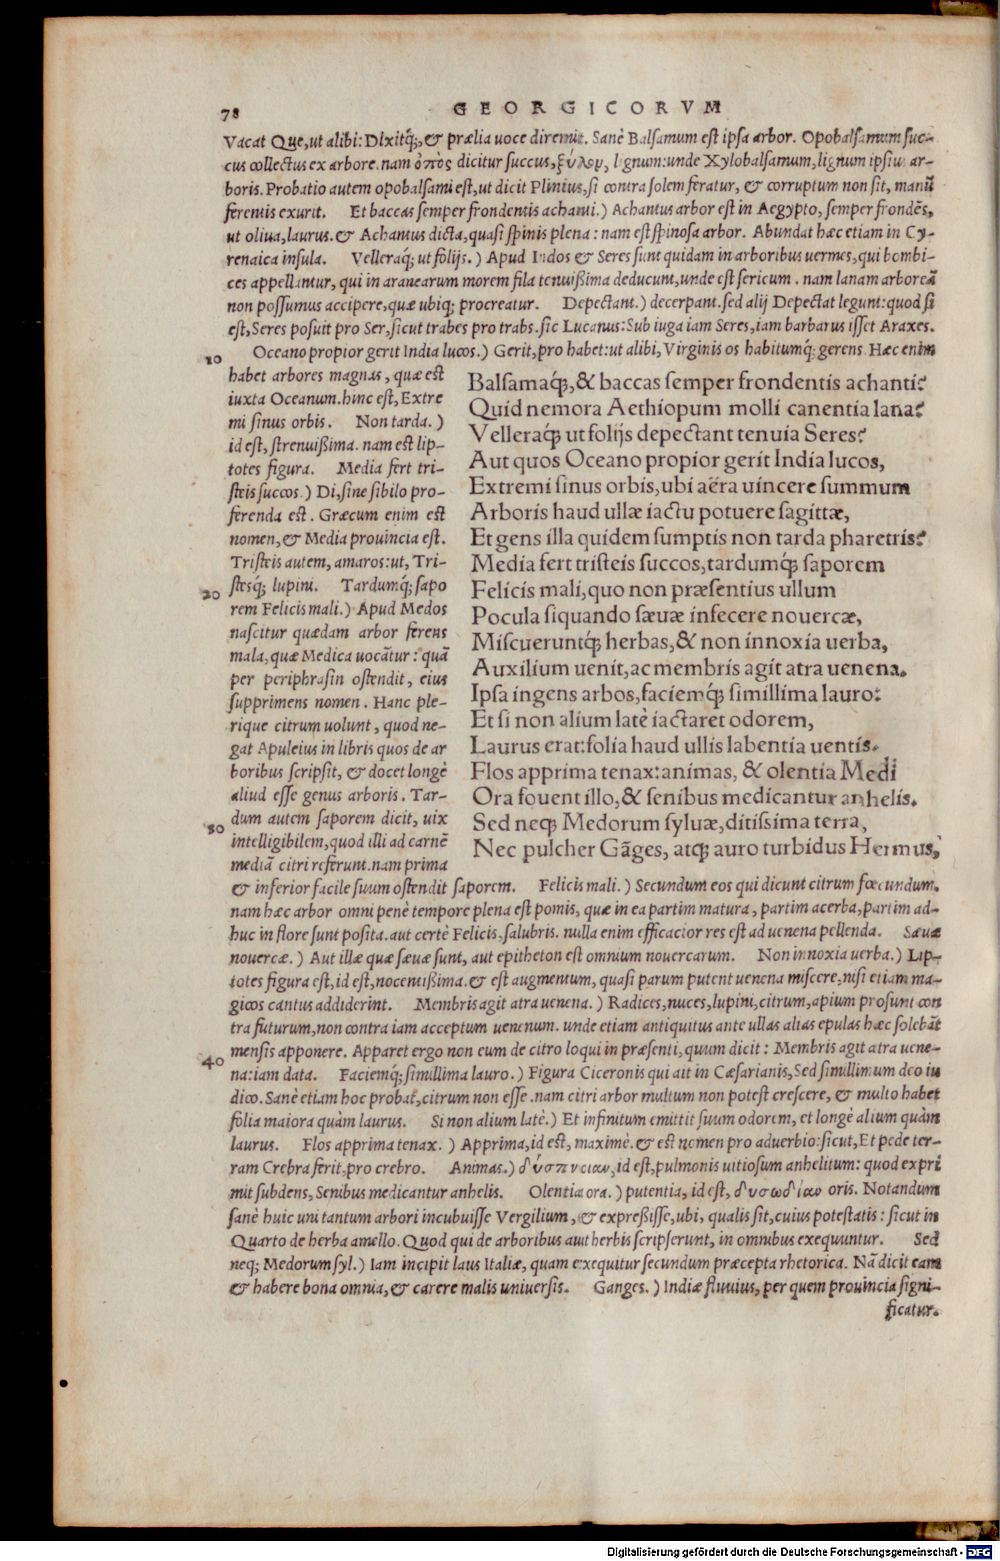 78 GEORGICORVM
Vacat Que, ut alibi: Dixitq́;, & prælia uoce diremit. Sanè Balsamum est ipsa arbor. Opobalsamum suc-
cus collectus ex arbore. nam ὀπὸς dicitur succus, ξύλον, lignum: unde Xylobalsamum, lignum ipsius ar-
boris. Probatio autem opobalsami est, ut dicit Plinius, si contra solem feratur, & corruptum non sit, manū
ferentis exurit. Et baccas semper frondentis achanti.) Achantus arbor est in Aegypto, semper frondēs,
ut oliua, laurus. & Achantus dicta, quasi spinis plena: nam est spinosa arbor. Abundat hæc etiam in Cy-
renaica insula. Velleraq́; ut folijs.) Apud Indos & Seres sunt quidam in arboribus uermes, qui bombi-
ces appellantur, qui in aranearum morem fila tenuißima deducunt, unde est sericum. nam lanam arboreā
non possumus accipere, quæ ubiq; procreatur. Depectant.) decerpant. sed alij Depectat legunt: quod si
est, Seres posuit pro Ser, sicut trabes pro trabs. sic Lucanus: Sub iuga iam Seres, iam barbarus isset Araxes.
10 Oceano propior gerit India lucos.) Gerit, pro habet: ut alibi, Virginis os habitumq́; gerens. Hæc enim
habet arbores magnas, quæ est
iuxta Oceanum. hinc est, Extre
mi sinus orbis. Non tarda.)
id est, strenuißima. nam est lip-
totes figura. Media fert tri-
steis succos.) Di, sine sibilo pro-
ferenda est. Græcum enim est
nomen, & Media prouincia est.
Tristeis autem, amaros: ut, Tri-
20 stesq́; lupini. Tardumq́; sapo
rem Felicis mali.) Apud Medos
nascitur quædam arbor ferens
mala, quæ Medica uocātur: quā
per periphrasin ostendit, eius
supprimens nomen. Hanc ple-
rique citrum uolunt, quod ne-
gat Apuleius in libris quos de ar
boribus scripsit, & docet longè
aliud esse genus arboris. Tar-
30 dum autem saporem dicit, uix
intelligibilem, quod illi ad carnē
mediā citri referunt. nam prima
Balsamaq́;, & baccas semper frondentis achanti?
Quid nemora Aethiopum molli canentia lana?
Velleraq́; ut folijs depectant tenuia Seres?
Aut quos Oceano propior gerit India lucos,
Extremi sinus orbis, ubi aëra uincere summum
Arboris haud ullæ iactu potuere sagittæ,
Et gens illa quidem sumptis non tarda pharetris?
Media fert tristeis succos, tardumq́; saporem
Felicis mali, quo non præsentius ullum
Pocula siquando sæuæ infecere nouercæ,
Miscueruntq́; herbas, & non innoxia uerba,
Auxilium uenit, ac membris agit atra uenena.
Ipsa ingens arbos, faciemq́; simillima lauro:
Et si non alium latè iactaret odorem,
Laurus erat: folia haud ullis labentia uentis.
Flos apprima tenax: animas, & olentia Medi
Ora fouent illo, & senibus medicantur anhelis.
Sed neq; Medorum syluæ, ditissima terra,
Nec pulcher Gāges, atq; auro turbidus Hermus,
& inferior facile suum ostendit saporem. Felicis mali.) Secundum eos qui dicunt citrum fœcundum.
nam hæc arbor omni penè tempore plena est pomis, quæ in ea partim matura, partim acerba, partim ad-
huc in flore sunt posita. aut certè Felicis, salubris. nulla enim efficacior res est ad uenena pellenda. Sæuæ
nouercæ.) Aut illæ quæ sæuæ sunt, aut epitheton est omnium nouercarum. Non innoxia uerba.) Lip-
totes figura est, id est, nocentißima. & est augmentum, quasi parum putent uenena miscere, nisi etiam ma-
gicos cantus addiderint. Membris agit atra uenena.) Radices, nuces, lupini, citrum, apium prosunt con
tra futurum, non contra iam acceptum uenenum. unde etiam antiquitus ante ullas alias epulas hæc solebāt
40 mensis apponere. Apparet ergo non eum de citro loqui in præsenti, quum dicit: Membris agit atra uene-
na: iam data. Faciemq́; simillima lauro.) Figura Ciceronis qui ait in Cæsarianis, Sed simillimum deo iu
dico. Sanè etiam hoc probat, citrum non esse. nam citri arbor multum non potest crescere, & multo habet
folia maiora quàm laurus. Si non alium latè.) Et infinitum emittit suum odorem, et longè alium quàm
laurus. Flos apprima tenax.) Apprima, id est, maximè. & est nomen pro aduerbio: sicut, Et pede ter-
ram Crebra ferit, pro crebro. Animas.) δύσπνοιαν, id est, pulmonis uitiosum anhelitum: quod expri
mit subdens, Senibus medicantur anhelis. Olentia ora.) putentia, id est, δυσωδίαν oris. Notandum
sanè huic uni tantum arbori incubuisse Vergilium, & expreßisse, ubi, qualis sit, cuius potestatis: sicut in
Quarto de herba amello. Quod qui de arboribus aut herbis scripserunt, in omnibus exequuntur. Sed
neq; Medorum syl.) Iam incipit laus Italiæ, quam exequitur secundum præcepta rhetorica. Nā dicit eam
& habere bona omnia, & carere malis uniuersis. Ganges.) Indiæ fluuius, per quem prouincia signi-
ficatur.
Digitalisierung gefördert durch die Deutsche Forschungsgemeinschaft - DFG